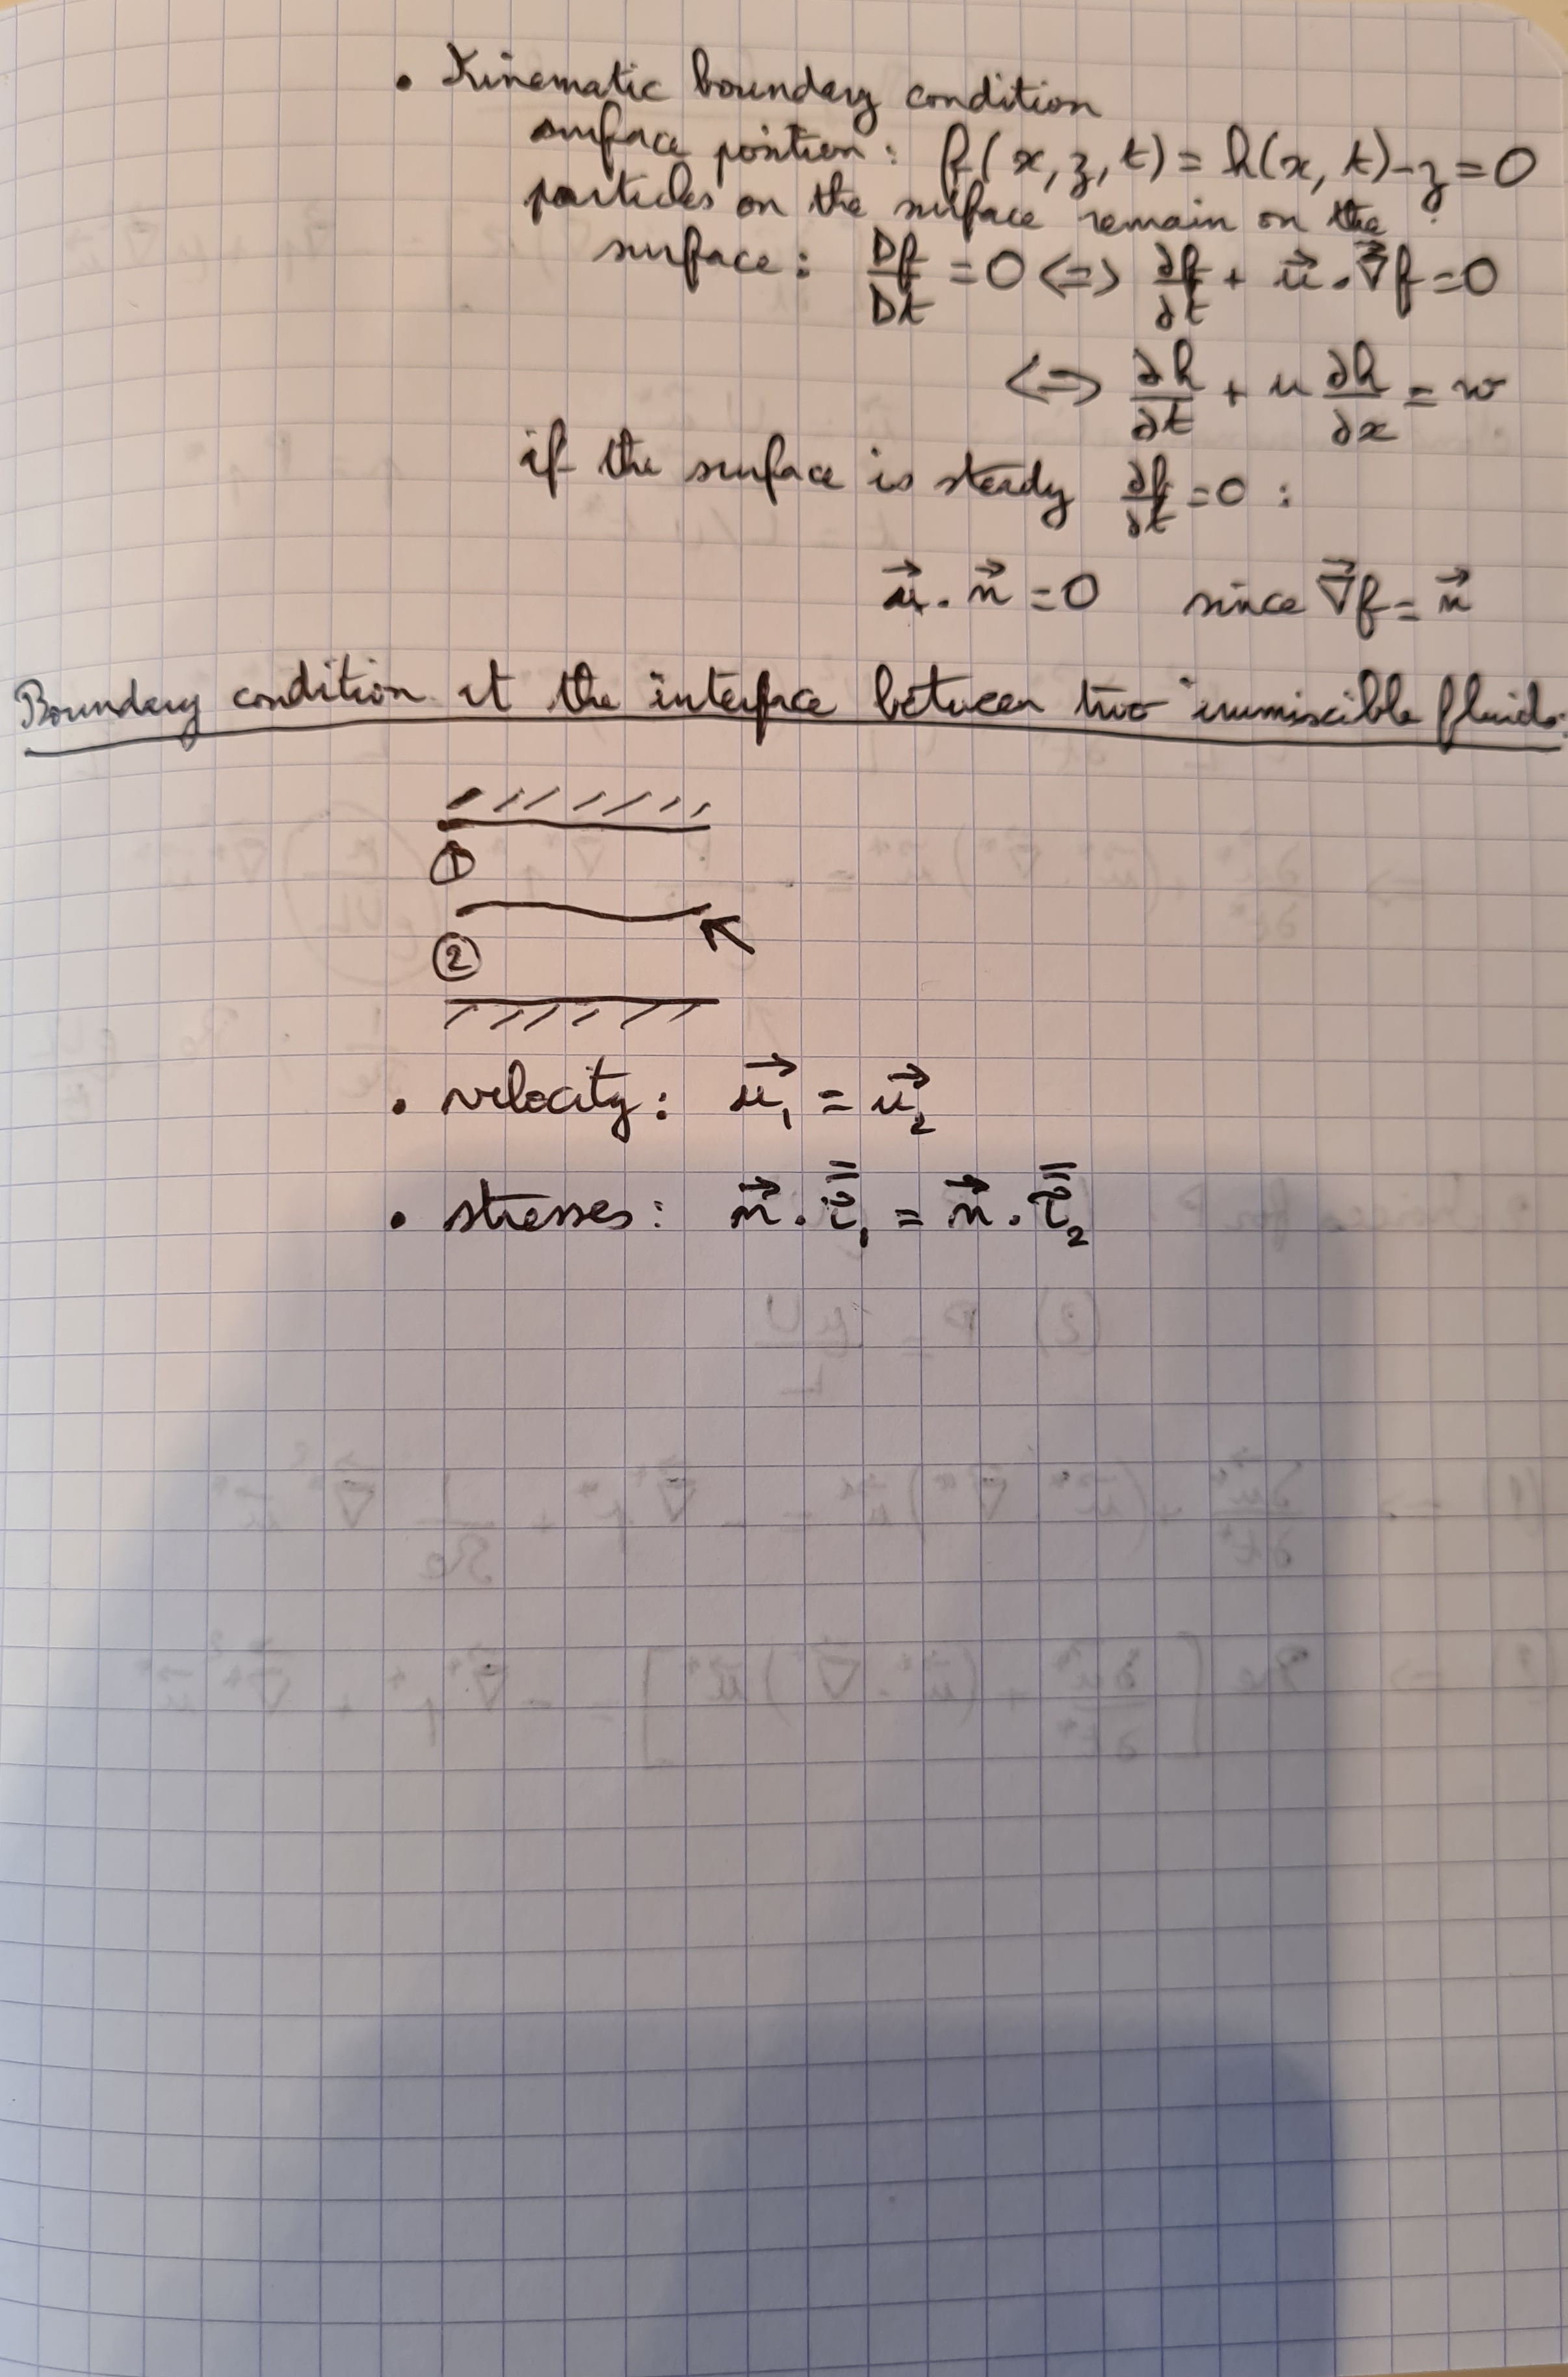 • Kinematic boundary condition
surface position: f(x, z, t) = h(x, t) - z = 0
particles on the surface remain on the
surface: Df/Dt = 0 <=> ∂f/∂t + u⃗ . ∇⃗f = 0
<=> ∂h/∂t + u ∂h/∂x = w
if the surface is steady ∂f/∂t = 0 :
u⃗ . n⃗ = 0 since ∇⃗f = n⃗
Boundary condition at the interface between two immiscible fluids:
①
②
• velocity: u⃗₁ = u⃗₂
• stresses: n⃗ . τ̿₁ = n⃗ . τ̿₂